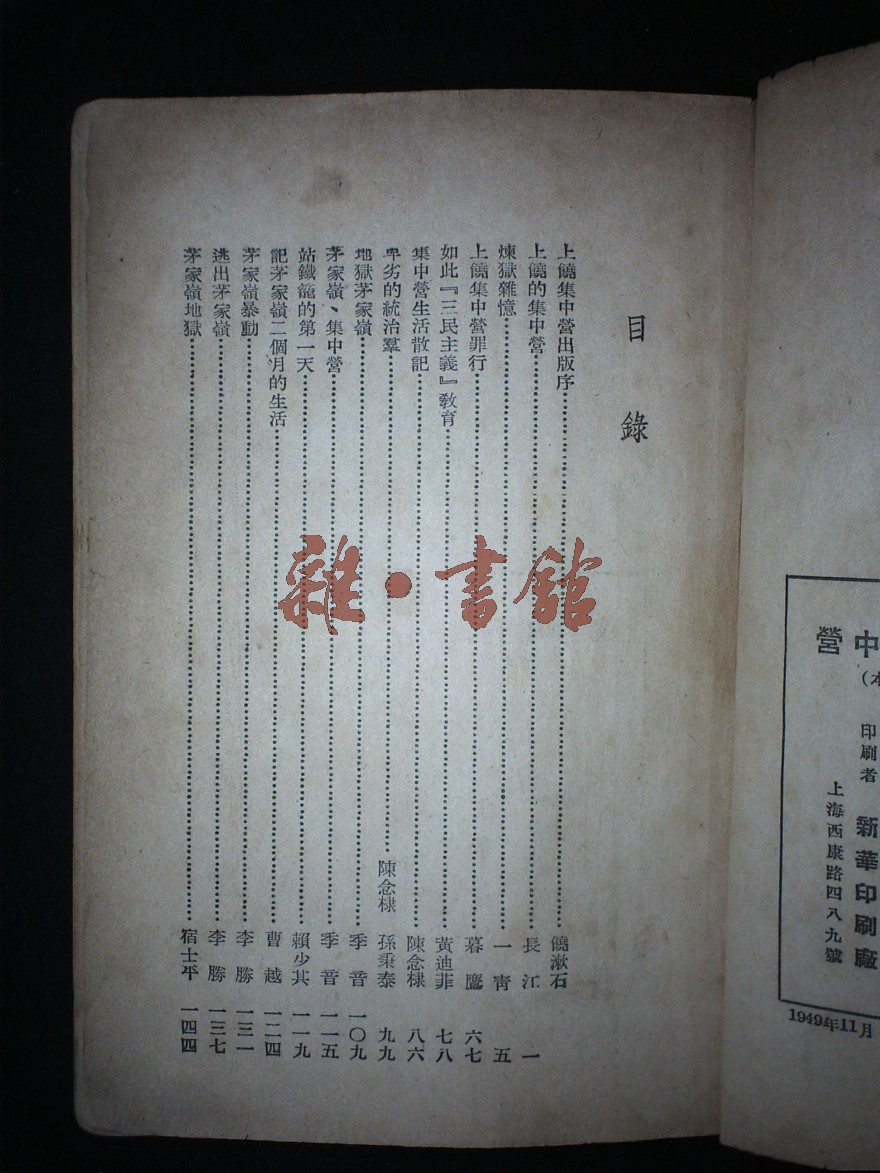 目錄
上饒集中營出版序……饒漱石
上饒的集中營……長江 一
煉獄雜憶……一青 五
上饒集中營罪行……暮鷹 六七
如此『三民主義』教育……黃迪菲 七八
集中營生活散記……陳念棣 八六
卑劣的統治羣……陳念棣 孫秉泰 九九
地獄茅家嶺……季音 一〇九
茅家嶺、集中營……季音 一一五
站鐵籠的第一天……賴少其 一一九
記茅家嶺二個月的生活……曹越 一二四
茅家嶺暴動……李勝 一三一
逃出茅家嶺……李勝 一三七
茅家嶺地獄……宿士平 一四四
雜·書館
中營
印刷者 新華印刷廠
上海西康路四八九號
1949年11月